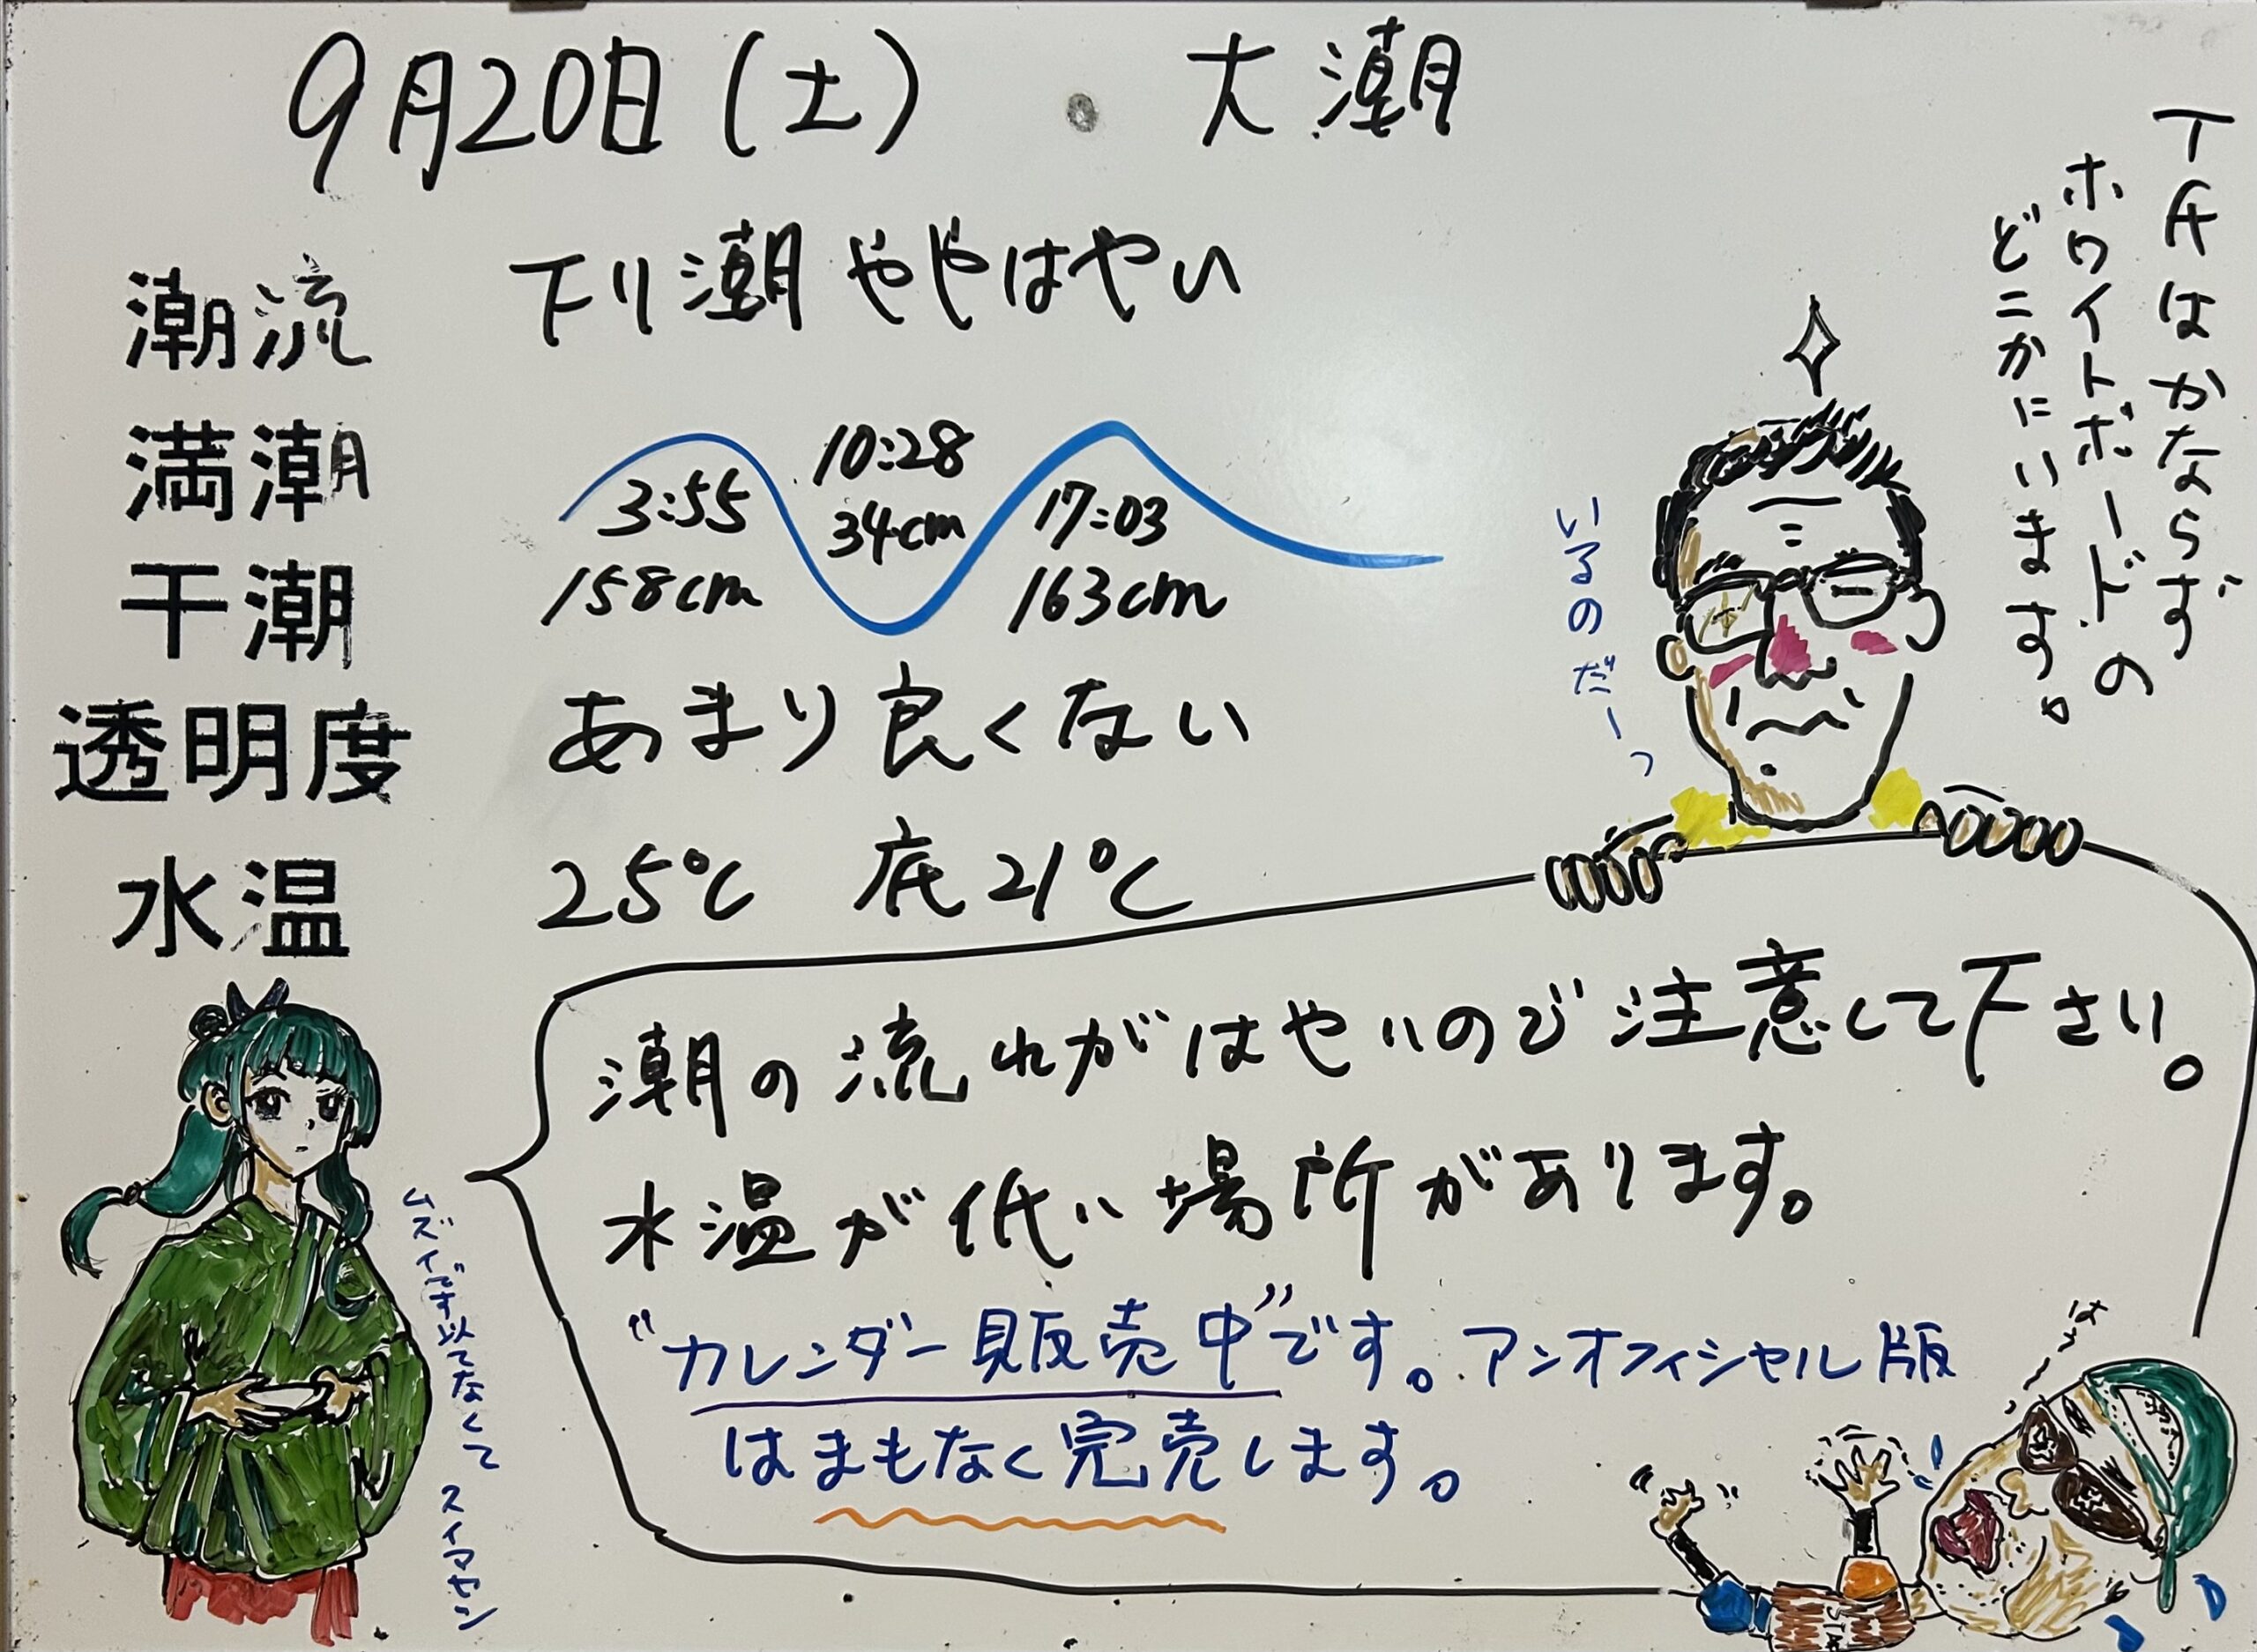 9月20日(土) 大潮
潮流 下り潮ややはやい
満潮
干潮
3:55
158cm
10:28
34cm
17:03
163cm
透明度 あまり良くない
水温 25℃ 底21℃
T氏はかならず
ホワイトボードの
どこかにいます。
いるのだーっ
潮の流れがはやいので注意して下さい。
水温が低い場所があります。
"カレンダー販売中"です。アンオフィシャル版
はまもなく完売します。
ムズイです似てなくて スイマセン